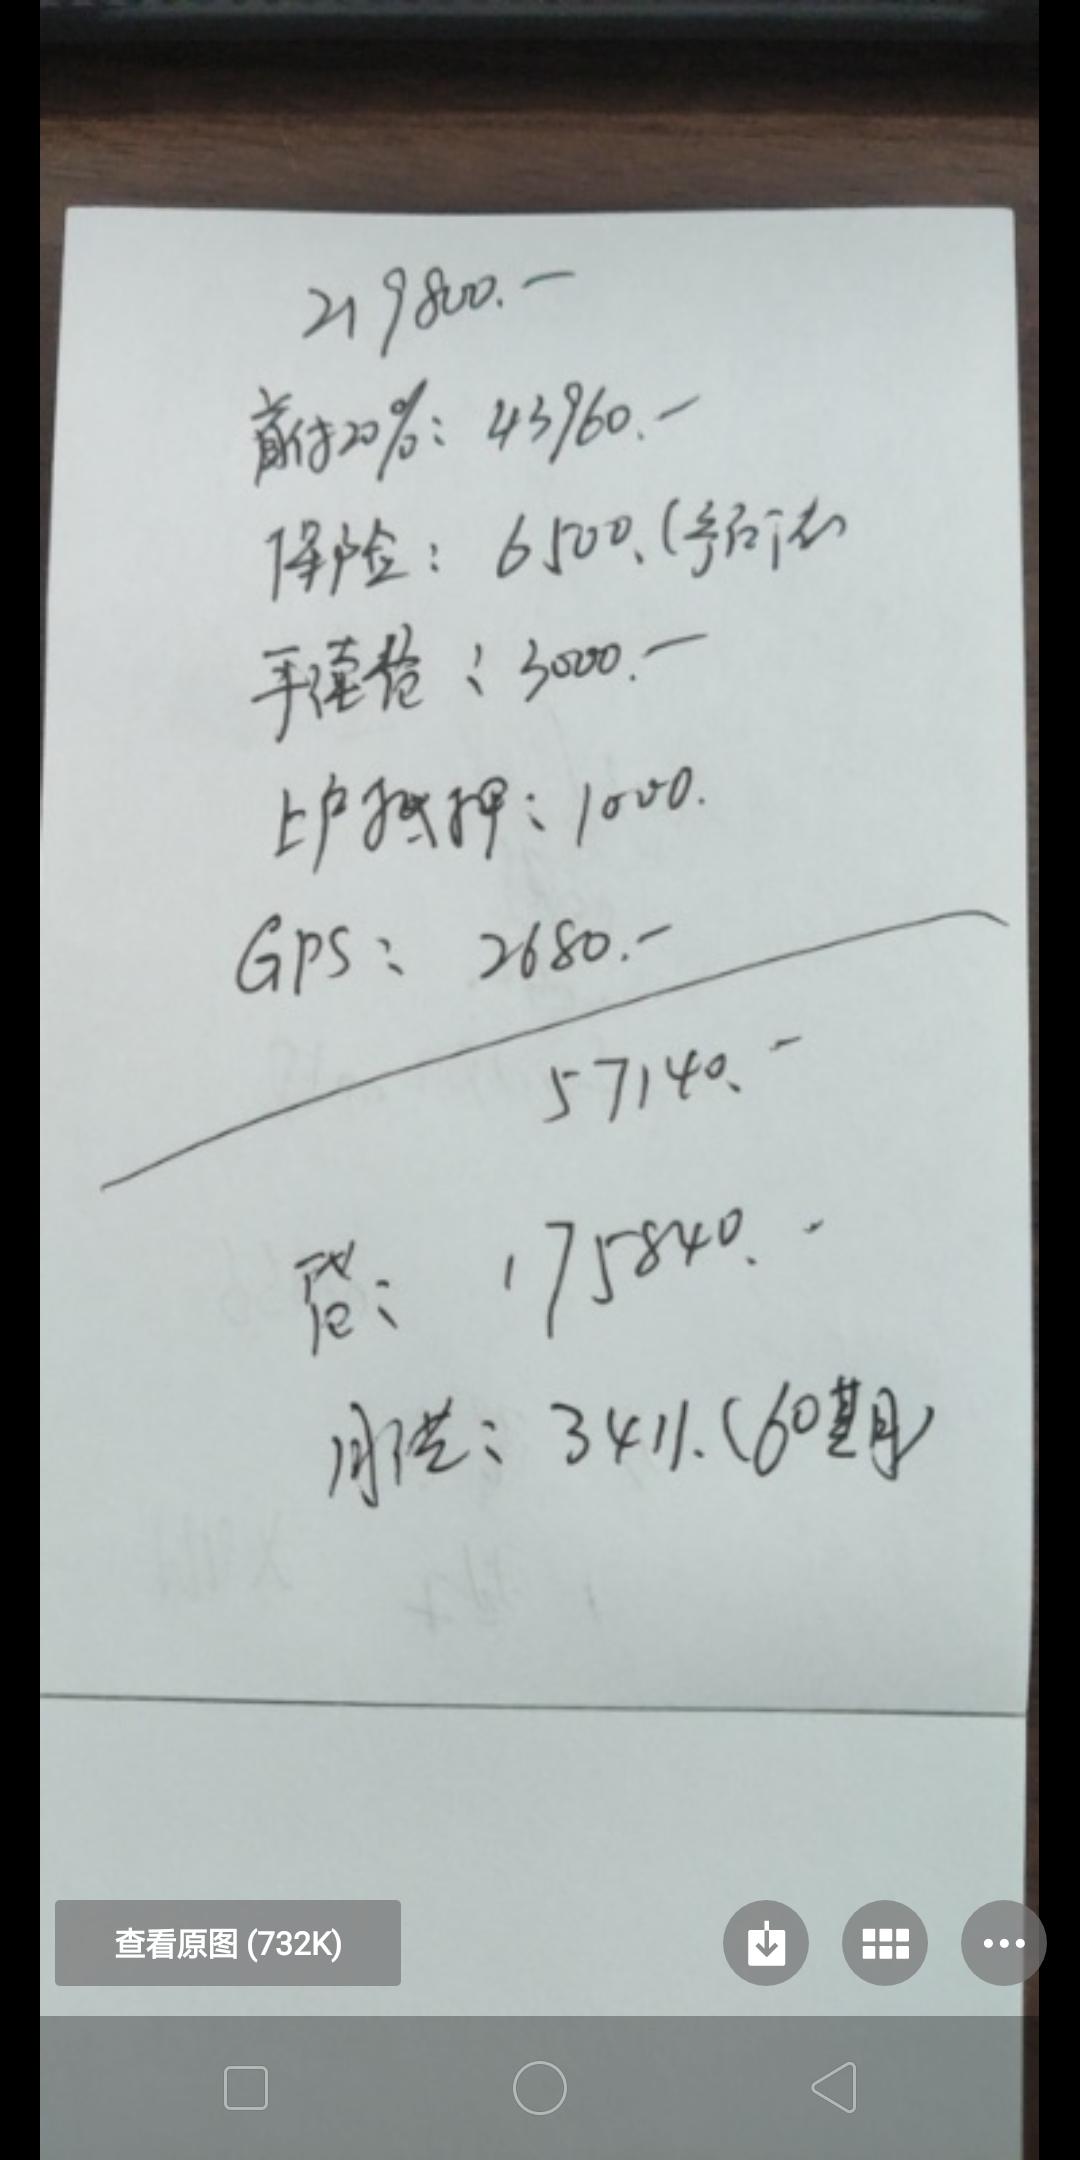 219800.一
首付20%: 43960.一
保险: 6500.(
手续费: 3000.一
上户抵押: 1000.
GPS: 2680.一
57140.一
贷: 175840.-
月供: 3411.(60期)
查看原图 (732K)